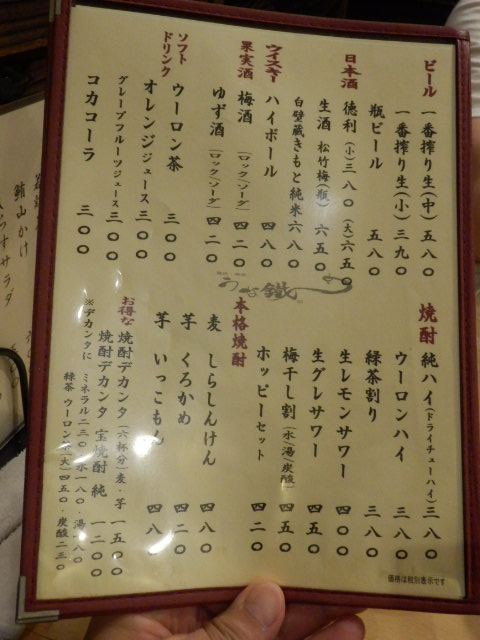 ビール
一番搾り生(中) 五八〇
一番搾り生(小) 三九〇
瓶ビール 五八〇
日本酒
徳利 (小)三八〇 (大)六五〇
生酒 松竹梅(瓶) 六五〇
白壁蔵きもと純米 六八〇
ウイスキー
ハイボール 四八〇
果実酒
梅酒 (ロック/ソーダ) 四二〇
ゆず酒 (ロック/ソーダ) 四二〇
ソフトドリンク
ウーロン茶 三〇〇
オレンジジュース 三〇〇
グレープフルーツジュース 三〇〇
コカコーラ 三〇〇
焼酎
純ハイ(ドライチューハイ) 三八〇
ウーロンハイ 三八〇
緑茶割り 三八〇
生レモンサワー 四〇〇
生グレサワー 四五〇
梅干し割(水/湯/炭酸) 四五〇
ホッピーセット 四二〇
本格焼酎
麦 しらしんけん 四八〇
芋 くろかめ 四二〇
芋 いっこもん 四八〇
お得な
焼酎デカンタ(六杯分)麦・芋 一五〇〇
焼酎デカンタ 宝焼酎 純 一二〇〇
※デカンタに ミネラル二三〇・氷一八〇・湯一八〇
緑茶 ウーロン茶(大)四五〇・炭酸二三〇
価格は税別表示です
鮪山かけ
サラダ